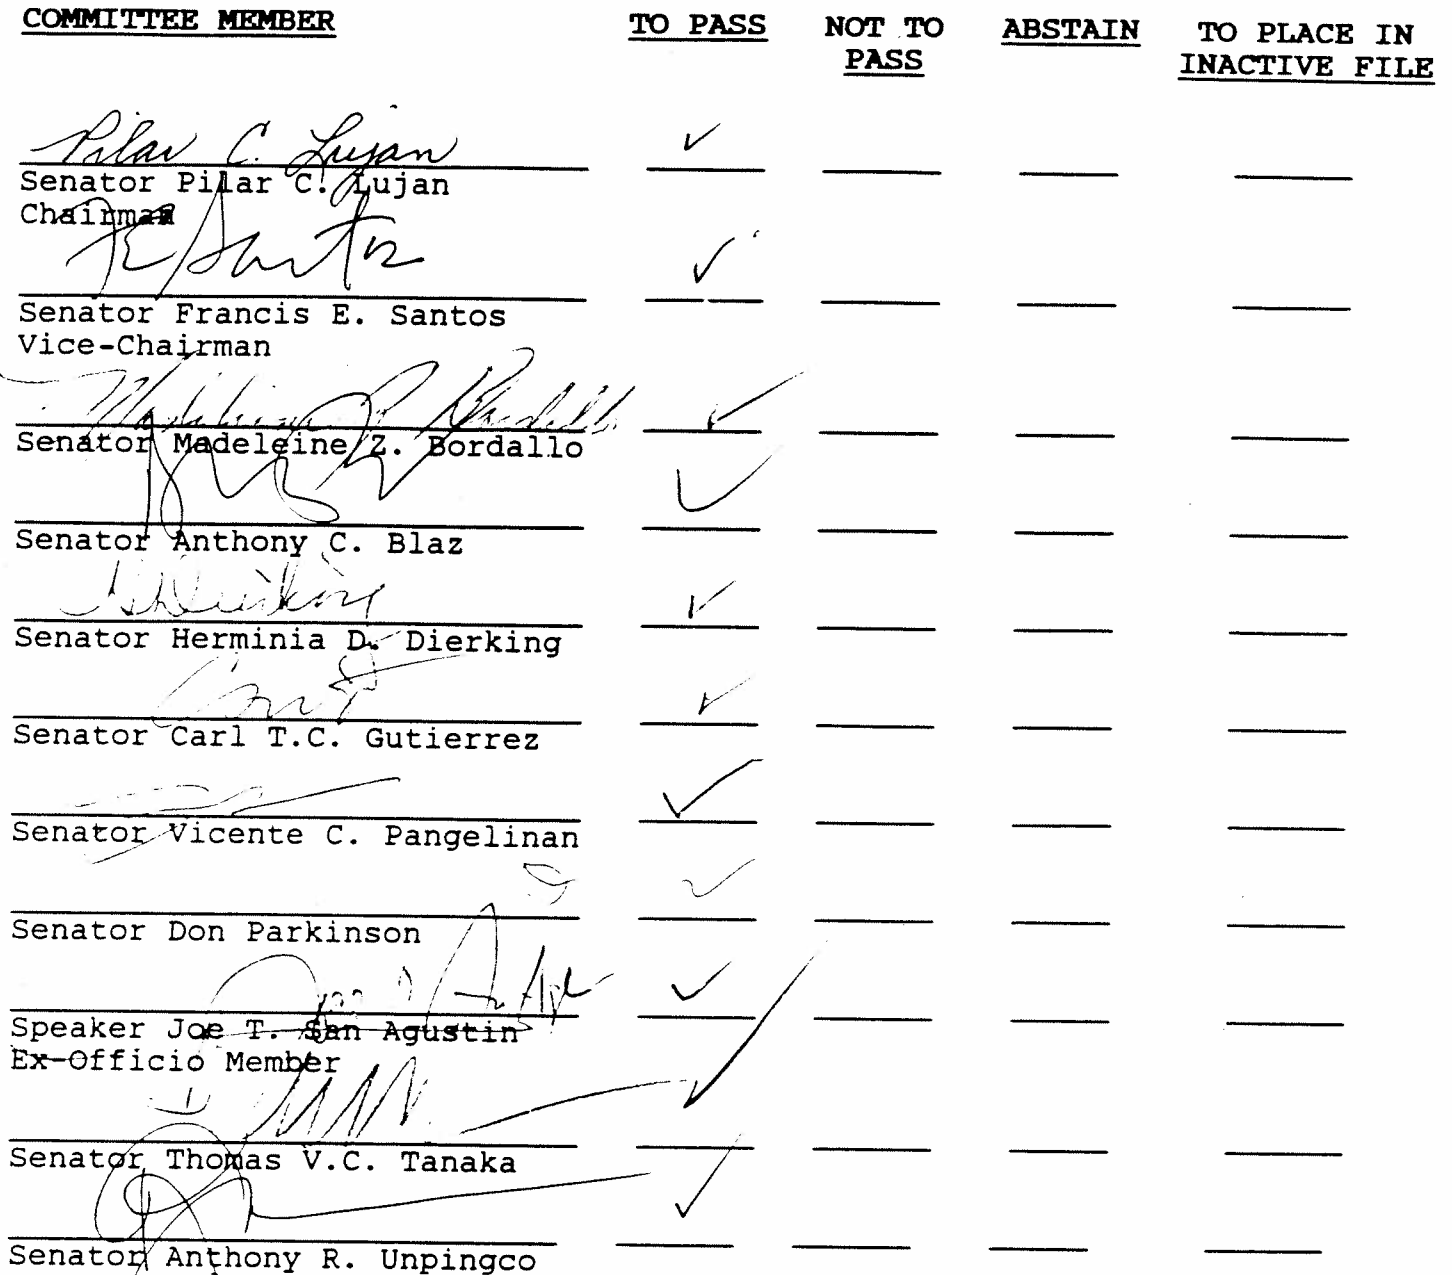 COMMITTEE MEMBER TO PASS NOT TO PASS ABSTAIN TO PLACE IN INACTIVE FILE
Pilar C. Lujan ✓
Senator Pilar C. Lujan
Chairman
F E Santos ✓
Senator Francis E. Santos
Vice-Chairman
Madeleine Z. Bordallo ✓
Senator Madeleine Z. Bordallo
✓
Senator Anthony C. Blaz
HDierking ✓
Senator Herminia D. Dierking
✓
Senator Carl T.C. Gutierrez
✓
Senator Vicente C. Pangelinan
✓
Senator Don Parkinson
✓
Speaker Joe T. San Agustin
Ex-Officio Member
✓
Senator Thomas V.C. Tanaka
✓
Senator Anthony R. Unpingco